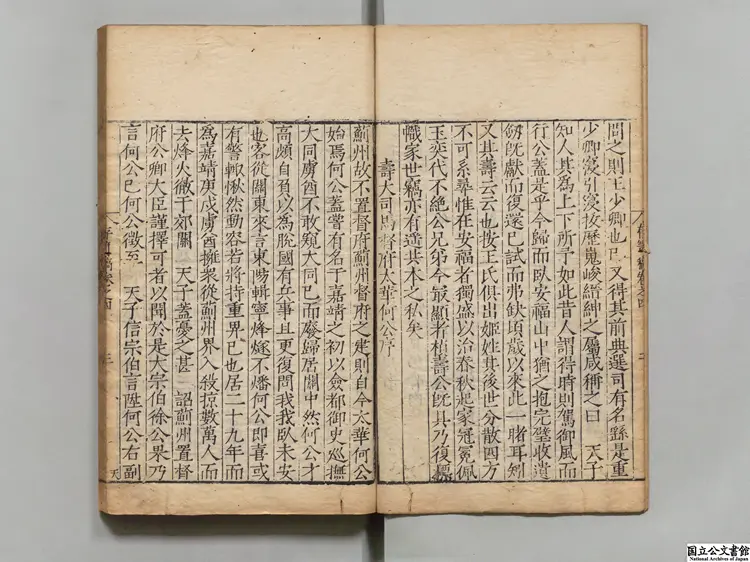 問之則王少卿也已又得其前典選司有名繇是重
少卿寖引寖拔歷嵬峻縉紳之屬咸稱之曰　天子
知人其為上下所予如此昔人謂得時則駕御風而
行公蓋是乎今歸而臥安福山中猶之抱完璧收遺
劒旣獻而復還已試而弗缺頃歲以來此一睹耳矧
又其壽云云也按王氏俱出姬姓其後世分散四方
不可系準惟在安福者獨盛以治春秋起家冠冕佩
玉奕代不絕公兄弟今最顯者植壽公旣具乃復
幟家世竊亦有造其本之私矣
壽大司馬督府太華何公序
薊州故不置督府薊州督府之建則自今太華何公
始焉何公蓋嘗有名于嘉靖之初以僉都御史巡撫
大同虜酋不敢窺大同已而廢歸居關中然何公才
高頗自負以為脫國有兵事且更復問我我臥未安
也客從關東來言東陲輯寧烽燧不燔何公即喜或
有警輒愀然動容若將持重畀已也居二十九年而
為嘉靖庚戌虜酋擁衆從薊州界入殺掠數萬人而
去烽火徹于郊關　天子蓋憂之甚　詔薊州置督
府公卿大臣謹擇可者以聞於是大宗伯徐公果乃
言何公已何公徵至　天子信宗伯言陞何公右副
三
天
国立公文書館
National Archives of Japan